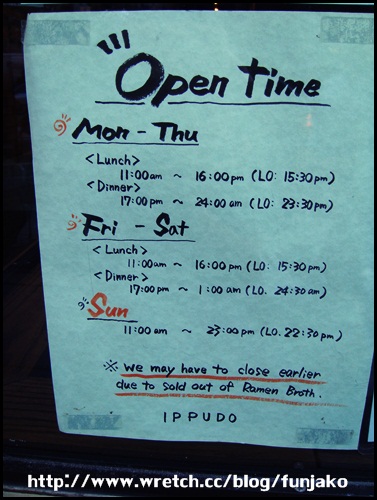 Open Time
Mon - Thu
<Lunch>
11:00am ~ 16:00pm (LO: 15:30pm)
<Dinner>
17:00pm ~ 24:00am (LO: 23:30pm)
Fri - Sat
<Lunch>
11:00am ~ 16:00pm (LO: 15:30pm)
<Dinner>
17:00pm ~ 1:00am (LO. 24:30am)
Sun
11:00am ~ 23:00pm (LO. 22:30pm)
※ we may have to close earlier
due to sold out of Ramen Broth.
IPPUDO
http://www.wretch.cc/blog/funjako